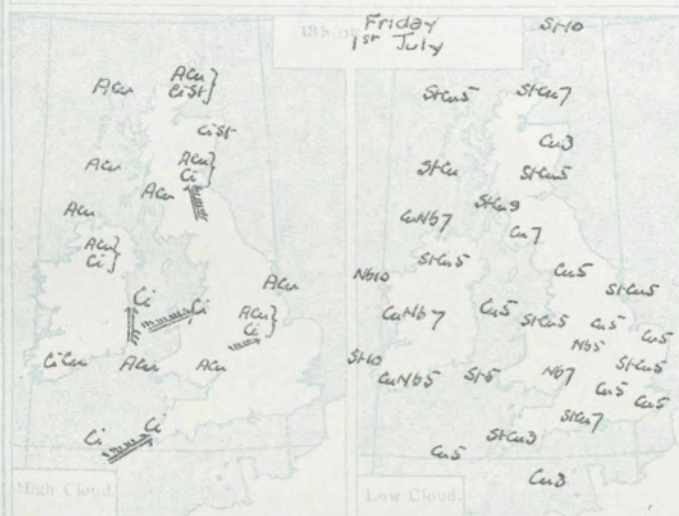 Friday
1st July
ACu
ACu }
CiSt }
CiSt
ACu
ACu }
Ci }
ACu
ACu
ACu }
Ci }
ACu
Ci
Ci
ACu }
Ci }
CiCu
ACu
ACu
Ci
Ci
High Cloud.
St10
StCu5
StCu7
Cu3
StCu
StCu5
StCu9
CuNb7
Cu7
StCu5
Nb10
Cu5
StCu5
CuNb7
Cu5
StCu5
Cu5
Cu5
Nb5
St10
StCu5
CuNb5
St5
Nb7
Cu5
Cu5
StCu7
StCu3
Cu5
Cu3
Low Cloud.